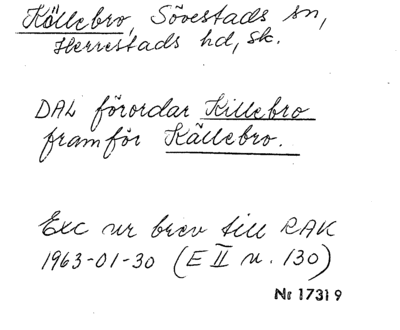 Källebro, Sövestads sn,
Herrestads hd, Sk.
DAL förordar Killebro
framför Källebro.
Exc ur brev till RAK
1963-01-30 (E II u. 130)
Nr 17319